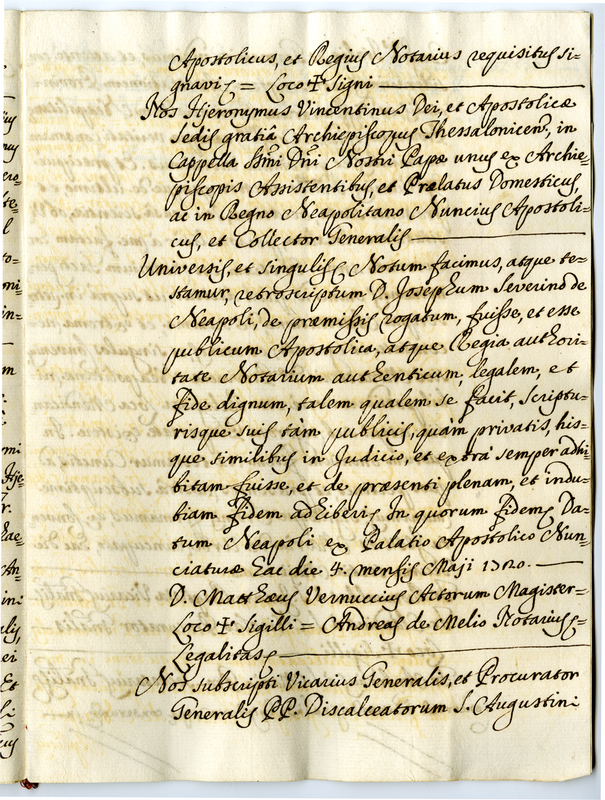 Apostolicus, et Regius Notarius requisitus si-
gnavi = Loco ✝ Signi
Nos Hjeronymus Vincentinus Dei, et Apostolicæ
Sedis gratiâ Archiepiscopus Thessalonicen, in
Cappella SSmi Dni Nostri Papæ unus ex Archie-
piscopis Assistentibus, et Prælatus Domesticus,
ac in Regno Neapolitano Nuncius Apostoli-
cus, et Collector Generalis
Universis, et singulis Notum facimus, atque te-
stamur, retroscriptum D. Josephum Severino de
Neapoli, de præmissis rogatum, fuisse, et esse
publicum Apostolica, atque Regia authori-
tate Notarium authenticum, legalem, et
fide dignum, talem qualem se facit, scriptu-
risque suis tàm publicis, quàm privatis, his-
que similibus in Judicio, et extra semper adhi-
bitam fuisse, et de præsenti plenam, et indu-
biam fidem adhiberi. In quorum fidem Da-
tum Neapoli ex Palatio Apostolico Nun-
ciaturæ hac die 4. mensis Maji 1720.
D. Matthæus Vernuccius Actorum Magister-
Loco ✝ Sigilli = Andreas de Melio Notarius-
Legalitas
Nos subscripti Vicarius Generalis, et Procurator
Generalis PP. Discalceatorum S. Augustini